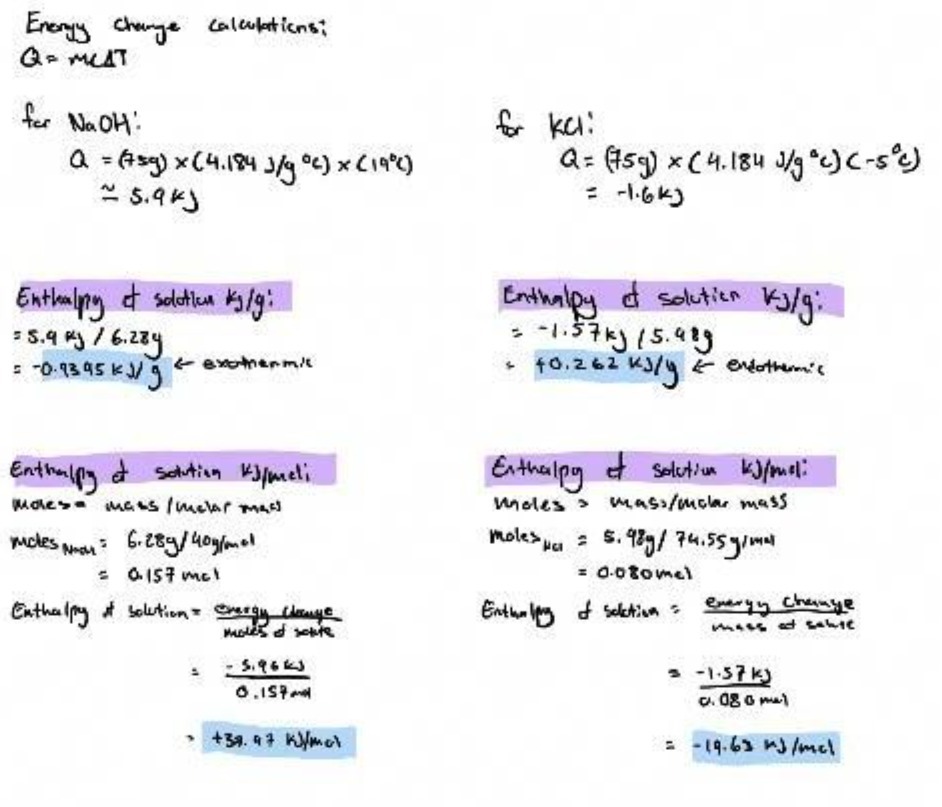 Energy change calculations:
Q = mcΔT
for NaOH:
Q = (75g) × (4.184 J/g °C) × (19°C)
≃ 5.9 kJ
Enthalpy of solution kJ/g:
= 5.9 kJ / 6.28g
= -0.9395 kJ/g ← exothermic
Enthalpy of solution kJ/mol:
moles = mass / molar mass
moles NaOH = 6.28g/40g/mol
= 0.157 mol
Enthalpy of solution = energy change
moles of solute
= -5.96 kJ
0.157 mol
= +39.97 kJ/mol
for KCl:
Q = (75g) × (4.184 J/g °C) (-5°C)
= -1.6 kJ
Enthalpy of solution kJ/g:
= -1.57kJ / 5.98g
= +0.262 kJ/g ← endothermic
Enthalpy of solution kJ/mol:
moles = mass/molar mass
moles KCl = 5.98g/ 74.55g/mol
= 0.080 mol
Enthalpy of solution = energy change
mass of solute
= -1.57 kJ
0.080 mol
= -19.63 kJ/mol